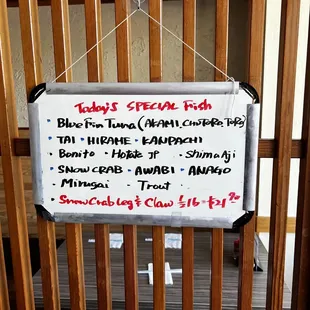 Today's SPECIAL Fish
• Blue Fin Tuna (AKAMI, CHUTORO, TORO)
TAI • HIRAME • KANPACHI
• Bonito • Hotate JP • Shima Aji
• SNOW CRAB • AWABI • ANAGO
• Mirugai • Trout •
• Snow Crab Leg & Claw